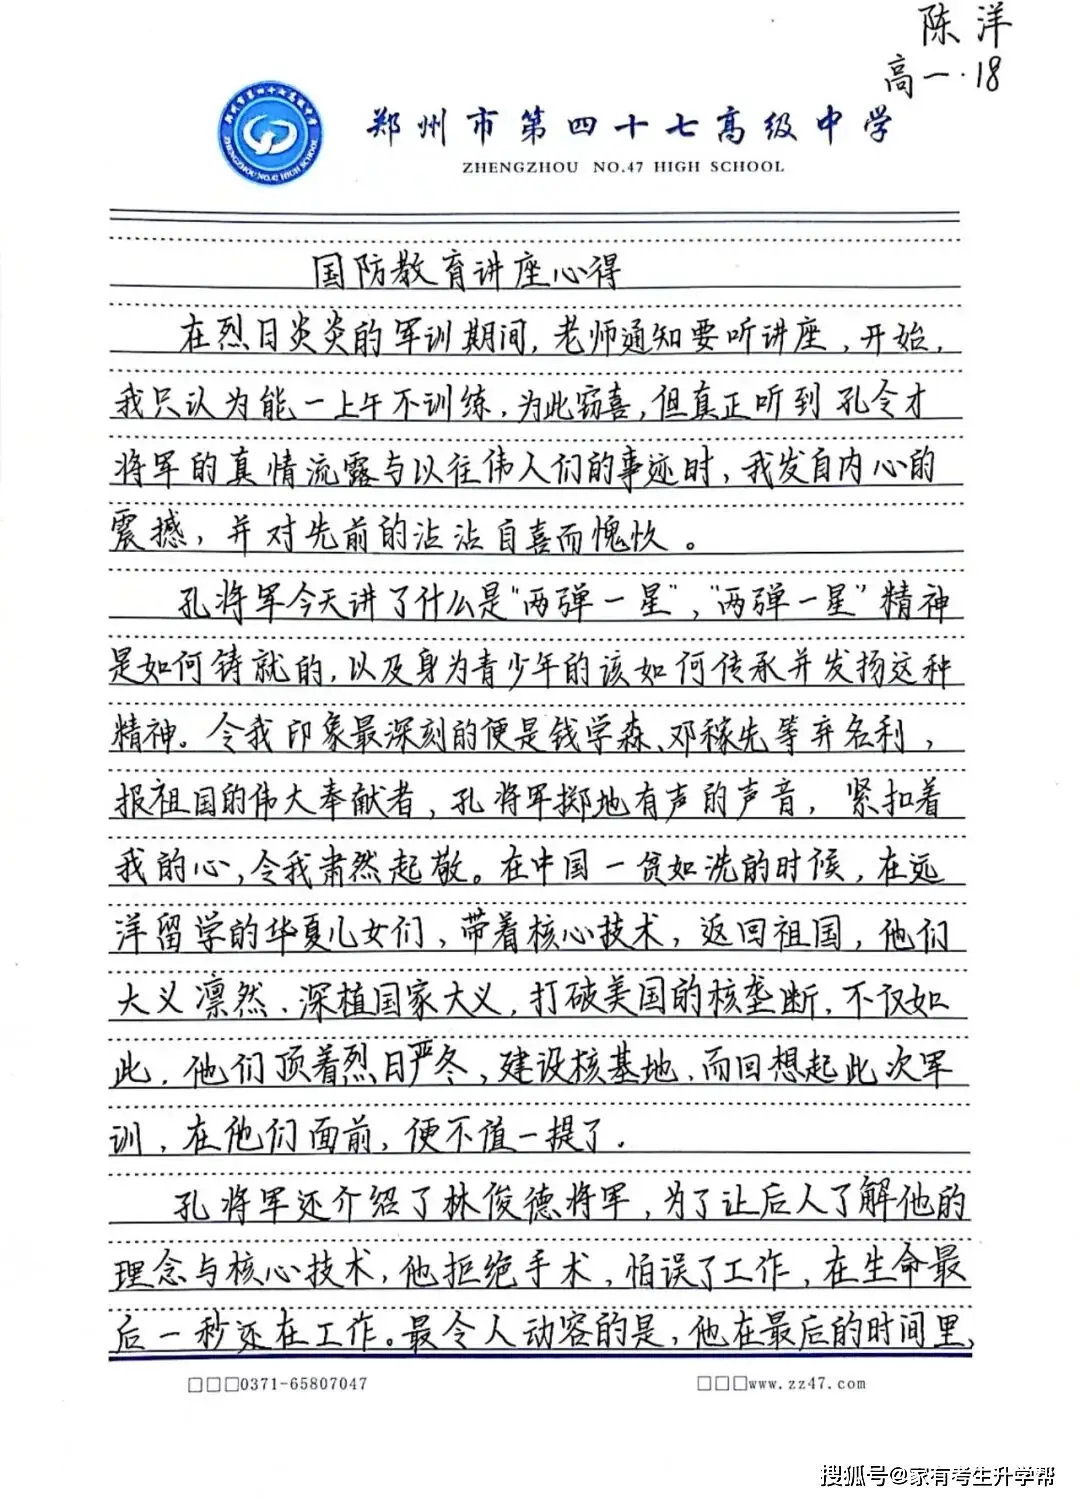 陈洋
高一·18
郑州市第四十七高级中学
ZHENGZHOU NO.47 HIGH SCHOOL
郑州市第四十七高级中学
ZHENGZHOU NO.47 HIGH SCHOOL
国防教育讲座心得
在烈日炎炎的军训期间,老师通知要听讲座,开始,
我只认为能一上午不训练,为此窃喜,但真正听到孔令才
将军的真情流露与以往伟人们的事迹时,我发自内心的
震撼,并对先前的沾沾自喜而愧疚。
孔将军今天讲了什么是“两弹一星”,“两弹一星”精神
是如何铸就的,以及身为青少年的该如何传承并发扬这种
精神。令我印象最深刻的便是钱学森、邓稼先等弃名利,
报祖国的伟大奉献者,孔将军掷地有声的声音,紧扣着
我的心,令我肃然起敬。在中国一贫如洗的时候,在远
洋留学的华夏儿女们,带着核心技术,返回祖国,他们
大义凛然、深植国家大义,打破美国的核垄断,不仅如
此,他们顶着烈日严冬,建设核基地,而回想起此次军
训,在他们面前,便不值一提了.
孔将军还介绍了林俊德将军,为了让后人了解他的
理念与核心技术,他拒绝手术,怕误了工作,在生命最
后一秒还在工作。最令人动容的是,他在最后的时间里,
□□□0371-65807047
□□□www.zz47.com
搜狐号@家有考生升学帮